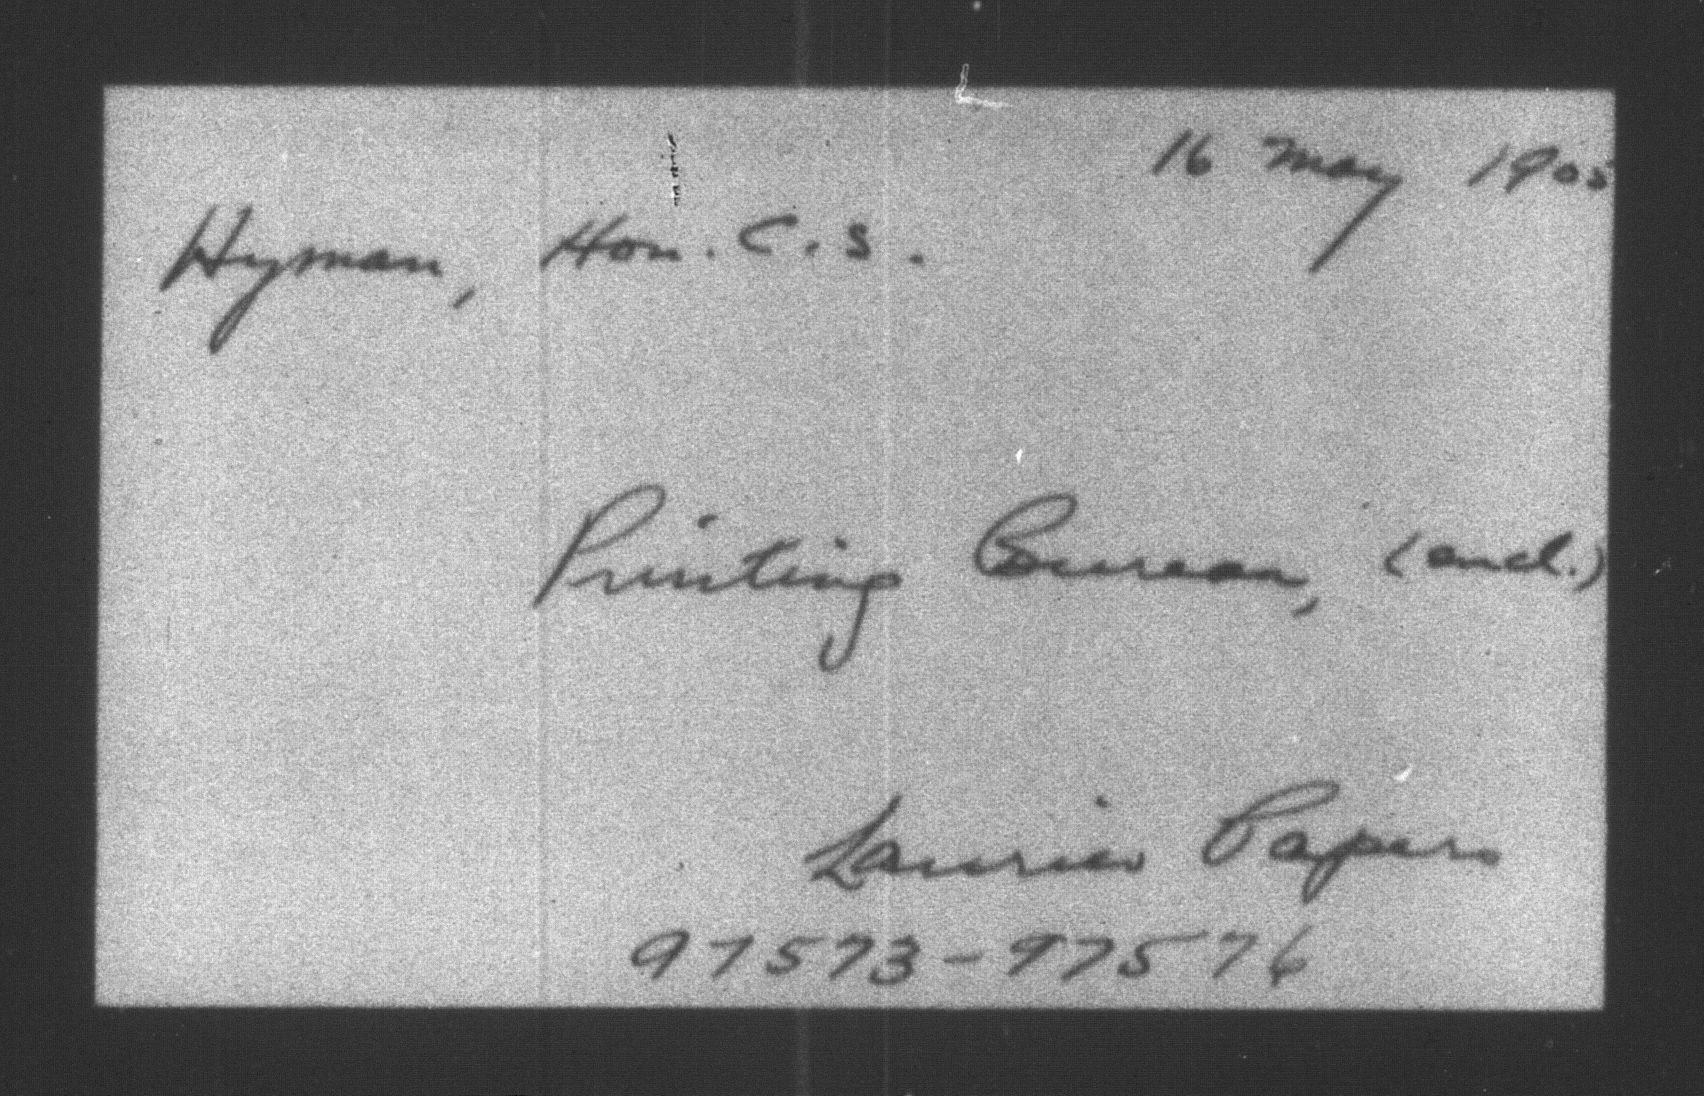 16 May 1905
Hyman, Hon. C. S.
Printing Bureau, (encl.)
Laurier Papers
97573-97576